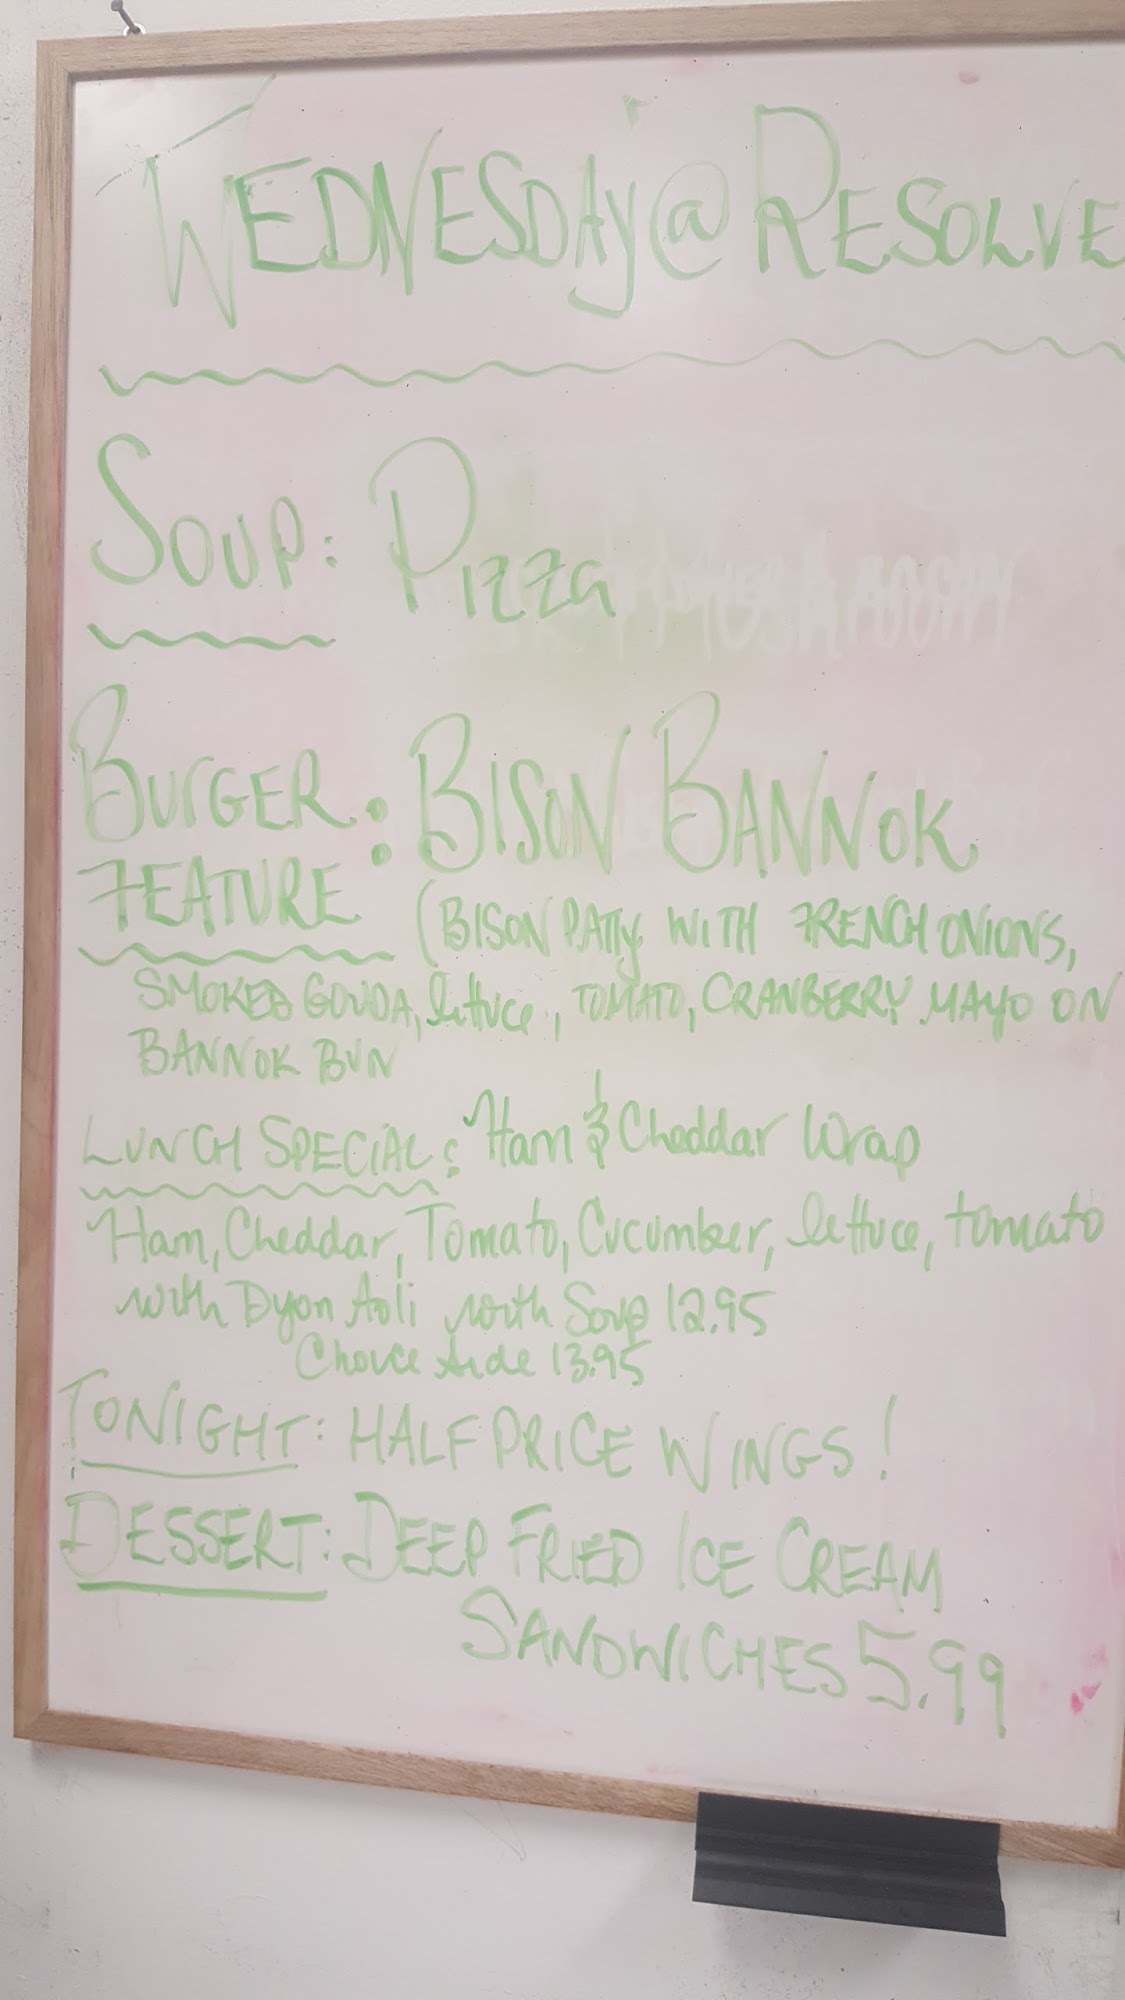 WEDNESDAY @ RESOLVE
SOUP: PIZZa
BURGER : BISON BANNOK
FEATURE (BISON PATTY WITH FRENCH ONIONS,
SMOKED GOUDA, lettuce, TOMATO, CRANBERRY MAYO ON
BANNOK BUN
LUNCH SPECIAL: Ham & Cheddar Wrap
Ham, Cheddar, Tomato, Cucumber, lettuce, tomato
with Dyon Aoli with Soup 12.95
Choice side 13.95
TONIGHT: HALF PRICE WINGS!
DESSERT: DEEP FRIED ICE CREAM
SANDWICHES 5.99